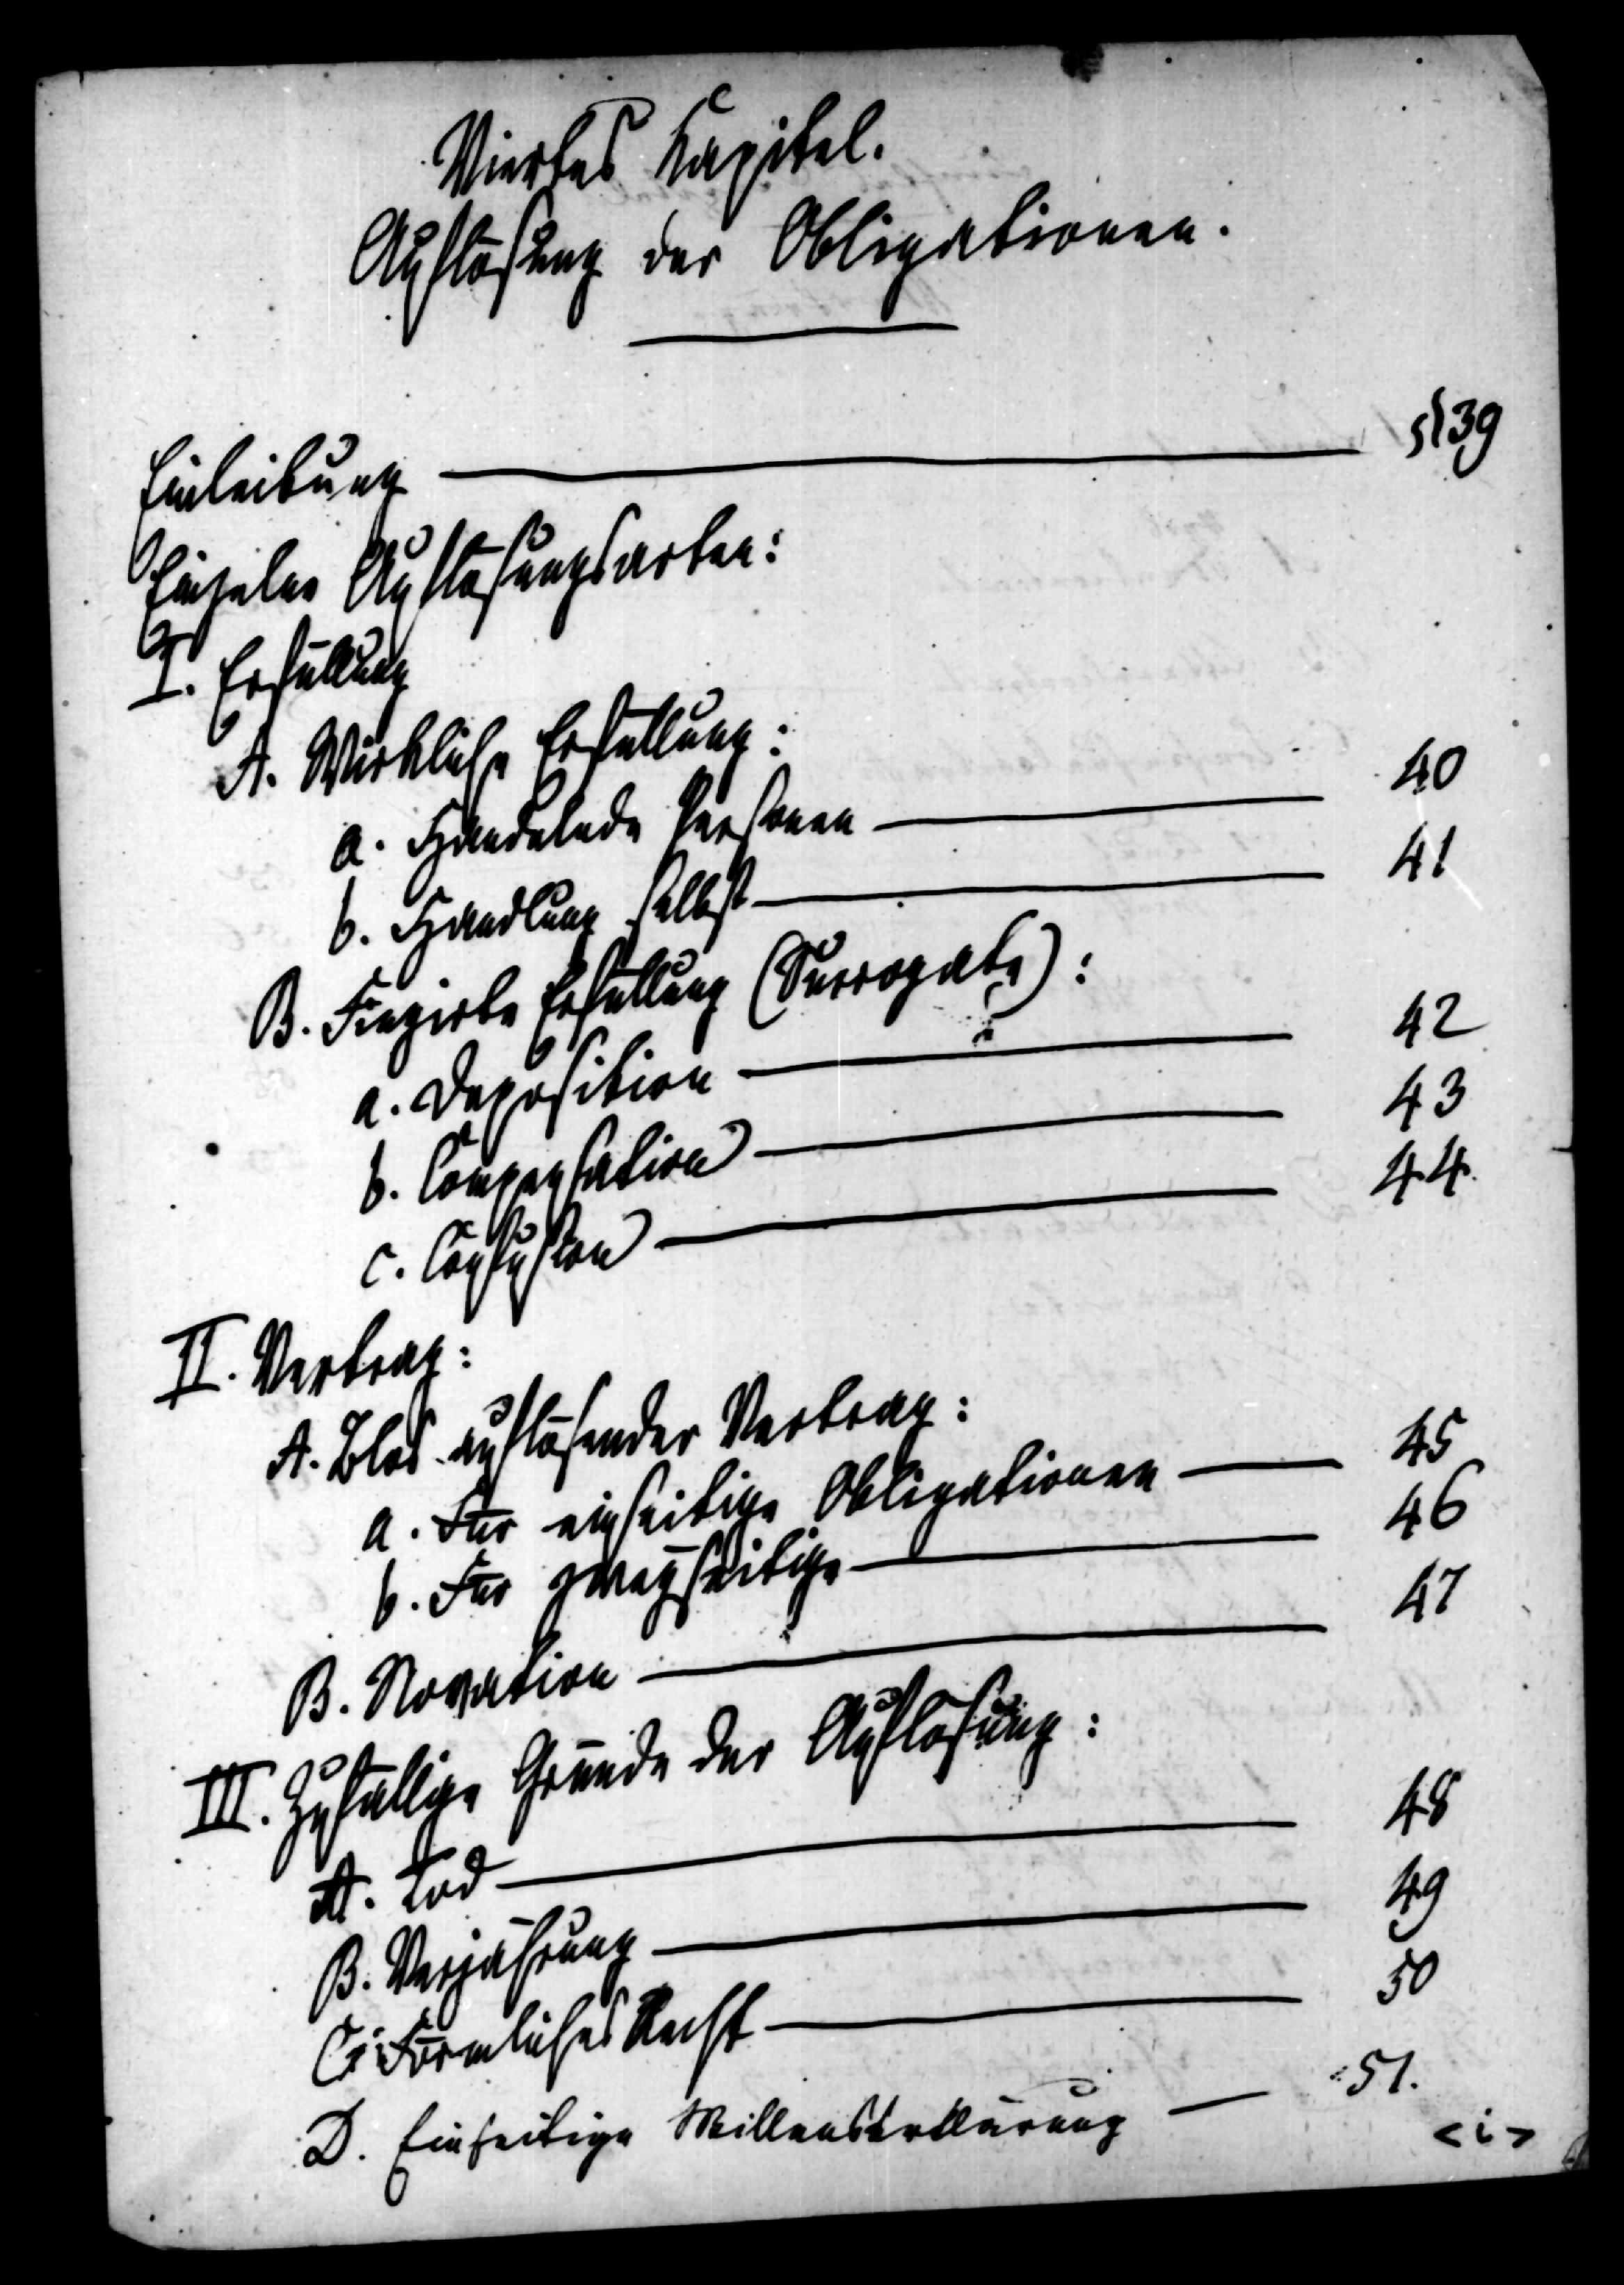 Viertes Kapitel.
Auflösung der Obligationen.
Einleitung — § 39
Einzelne Auflösungsarten:
I. Erfüllung
A. Wirkliche Erfüllung:
a. Handelnde Personen — 40
b. Handlung selbst — 41
B. Fingirte Erfüllung (Surrogate):
a. Deposition — 42
b. Compensation — 43
c. Confusion — 44.
II. Vertrag:
A. Blos auflösender Vertrag:
a. Für einseitige Obligationen — 45
b. Für zweyseitige — 46
B. Novation — 47
III. Zufällige Gründe der Auflösung:
A. Tod — 48
B. Verjährung — 49
C. Förmliches Recht — 50
D. Einseitige Willenserklärung — 51.